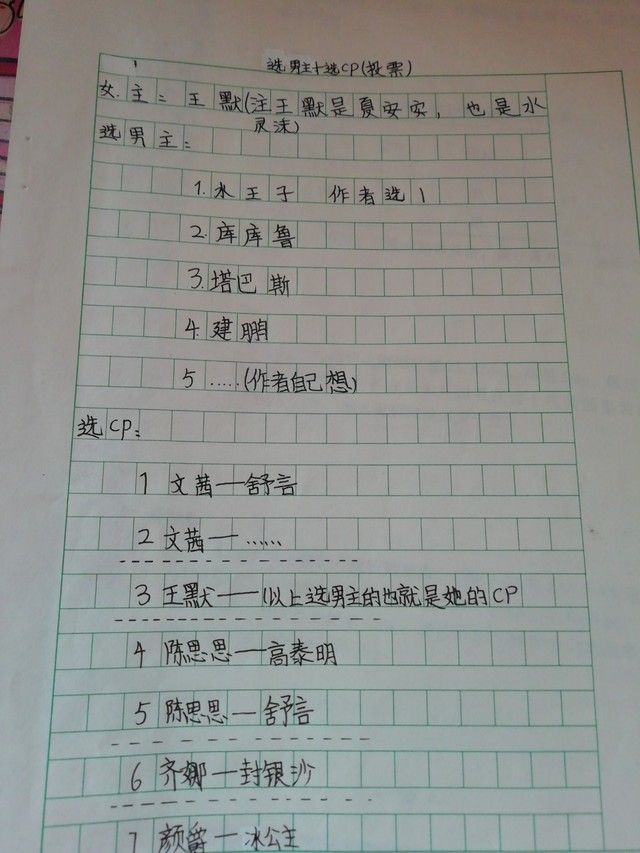 选男主+选CP(投票)
女主:王默(注王默是夏安安,也是水
灵沫)
选男主:
1.水王子 作者选1
2.库库鲁
3.塔巴斯
4.建鹏
5.....(作者自己想)
选CP:
1文茜—舒言
2文茜—......
3王默—(以上选男主的也就是她的CP
4陈思思—高泰明
5陈思思—舒言
6齐娜—封银沙
7颜爵—冰公主